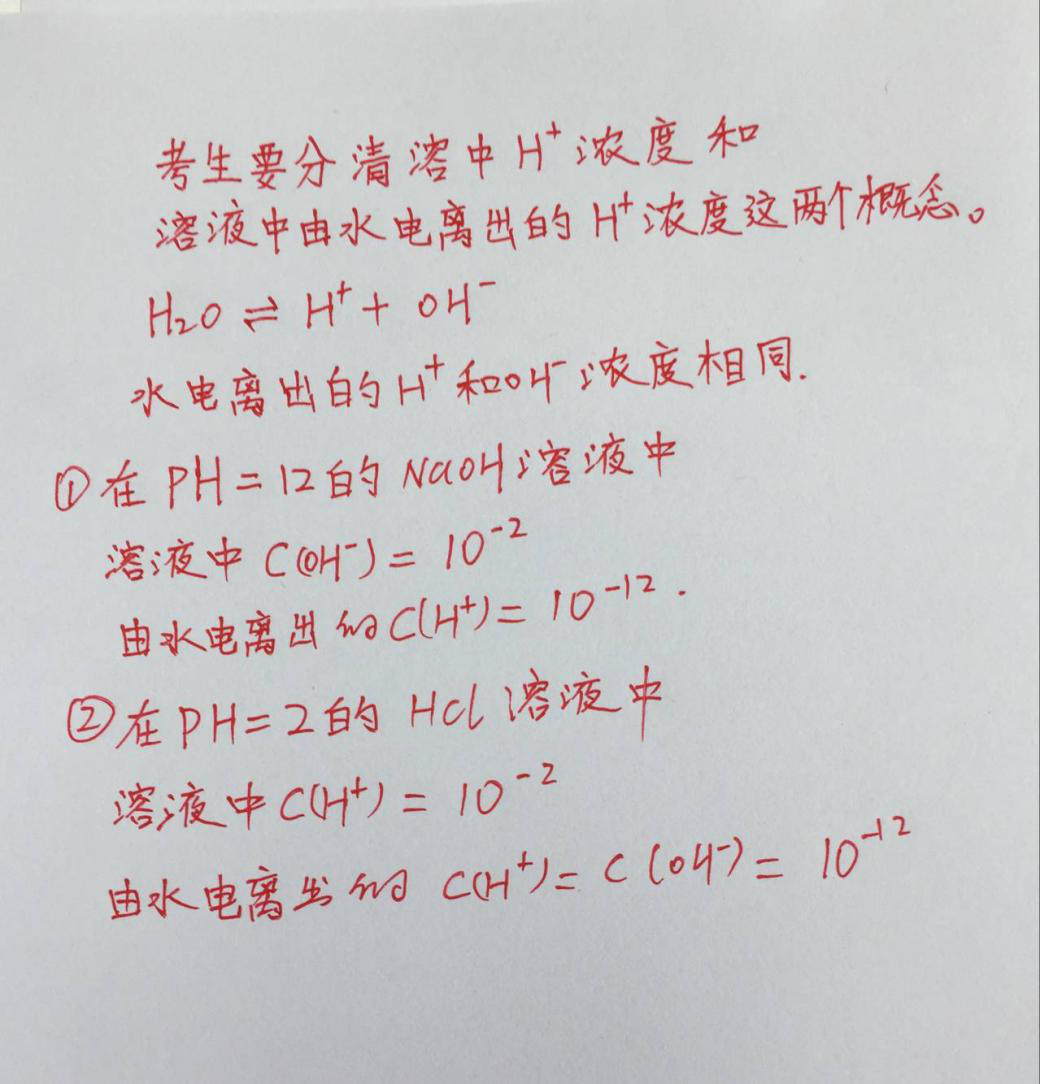 考生要分清溶中H⁺浓度和
溶液中由水电离出的H⁺浓度这两个概念。
H₂O ⇌ H⁺ + OH⁻
水电离出的H⁺和OH⁻浓度相同.
①在PH=12的NaOH溶液中
溶液中C(OH⁻)= 10⁻²
由水电离出的C(H⁺)= 10⁻¹².
②在PH=2的HCl溶液中
溶液中C(H⁺)= 10⁻²
由水电离出的C(H⁺)= C(OH⁻)= 10⁻¹²